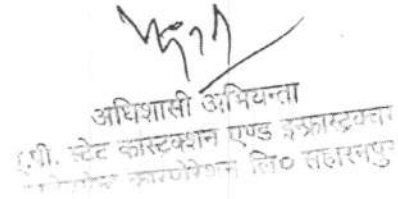 अधिशासी अभियन्ता
यू.पी. स्टेट कांस्टक्शन एण्ड इन्फ्रास्ट्रक्चर
कारपोरेशन लि० सहारनपुर